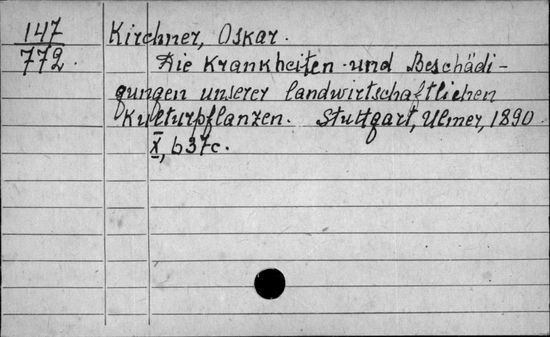 147
772.
Kirchner, Oskar.
Die Krankheiten und Beschädi-
gungen unserer landwirtschaftlichen
Kulturpflanzen. Stuttgart, Ulmer, 1890
X, 637c.